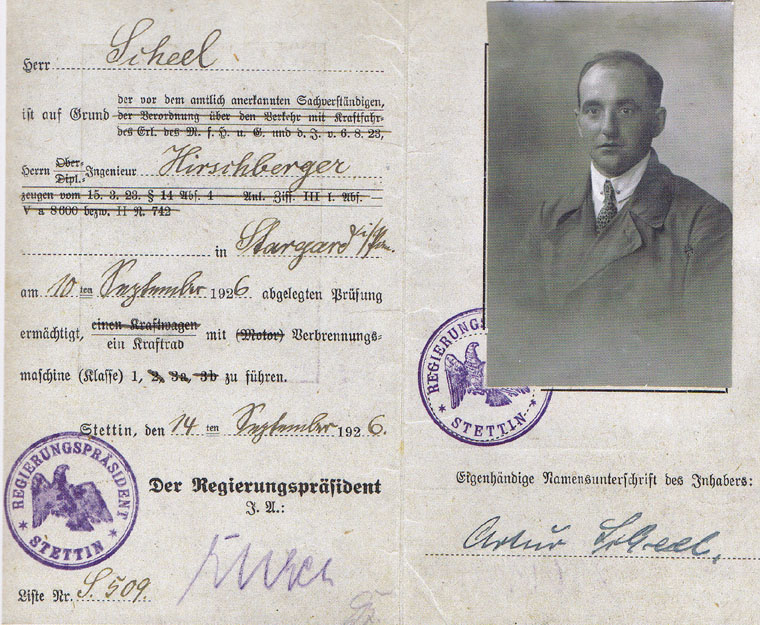 Herr Scheel
ist auf Grund der vor dem amtlich anerkannten Sachverständigen,
der Verordnung über den Verkehr mit Kraftfahr-
des Erl. des M. f. H. u. G. und d. J. v. 6. 8. 23,
Herrn Ober- Dipl.- Ingenieur Hirschberger
zeugen vom 15. 3. 23. § 14 Abs. 4 — Anl. Ziff. III 1. Abs.
V a 8600 bezw. II R. 742
in Stargard i/Pom.
am 10 ten September 1926 abgelegten Prüfung
ermächtigt, einen Kraftwagen ein Kraftrad mit (Motor) Verbrennungs-
maschine (Klasse) 1, 2, 3a, 3b zu führen.
Stettin, den 14 ten September 1926.
REGIERUNGSPRÄSIDENT
STETTIN
Der Regierungspräsident
J. A.:
Liste Nr. S. 509.
REGIERUNGS
STETTIN
Eigenhändige Namensunterschrift des Inhabers:
Artur Scheel.